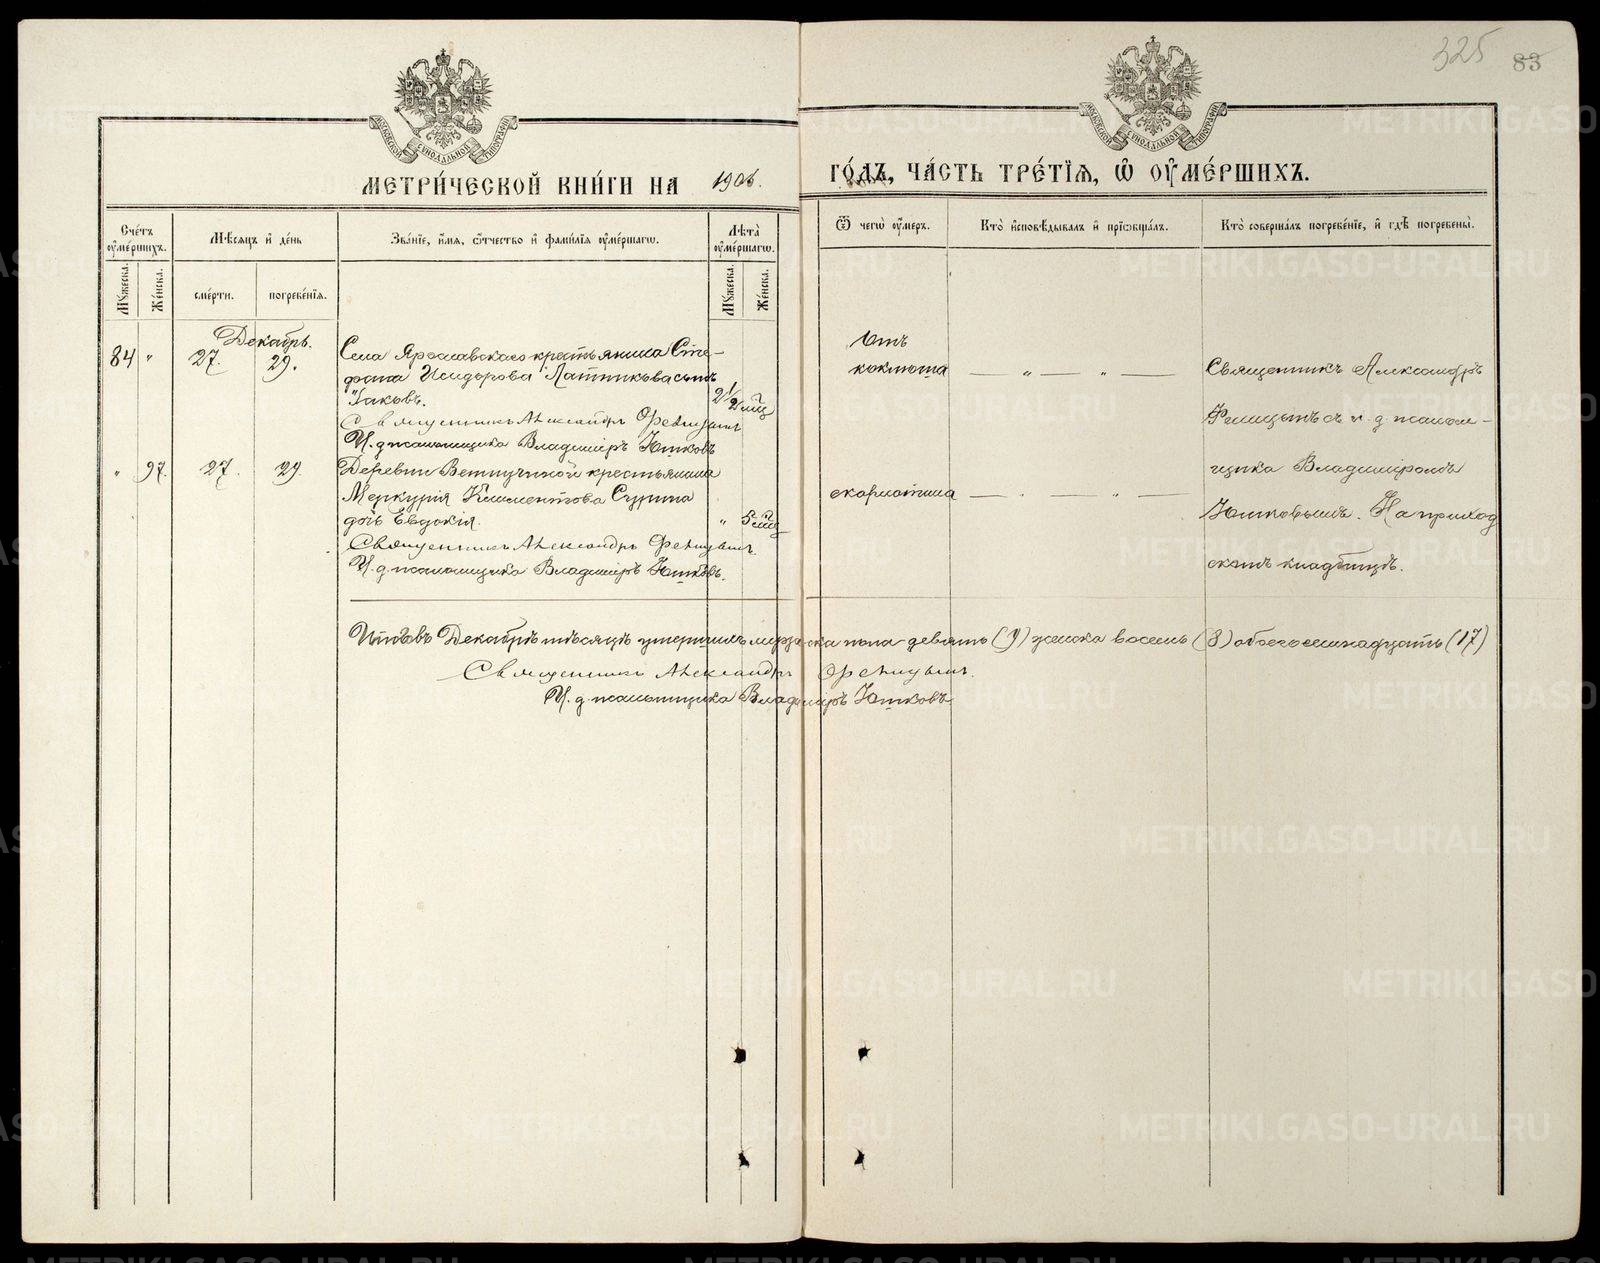 325 83
МОСКОВСКОЙ СѴНОДАЛЬНОЙ ТИПОГРАФІИ
МОСКОВСКОЙ СѴНОДАЛЬНОЙ ТИПОГРАФІИ
МЕТРИ́ЧЕСКОЙ КНИ́ГИ НА 1906. ГО́ДЪ, ЧА́СТЬ ТРЕ́ТІѦ, Ѡ҆ ОУ҆МЕ́РШИХЪ.
Сче́тъ оу҆ме́ршихъ.
Мꙋ́жеска.
Же́нска.
Мѣ́сѧцъ и҆ де́нь
сме́рти.
погребе́нїѧ.
Зва́нїе, и҆́мѧ, ѻ҆́тчество и҆ фами́лїѧ оу҆ме́ршагѡ.
Лѣ́та оу҆ме́ршагѡ.
Мꙋ́жеска.
Же́нска.
Ѿ чегѡ̀ оу҆́меръ.
Кто̀ и҆сповѣ́дывалъ и҆ прїѡбща́лъ.
Кто̀ соверша́лъ погребе́нїе, и҆ гдѣ̀ погребены̀.
Декабрь.
84 „ 27. 29.
Села Ярославскаго крестьянина Сте-
фана Исидорова Латникова сынъ
Іаковъ. 2½ мц
Священникъ Александръ
И. д. псаломщика Владиміръ Юшковъ
Отъ
коклюша — „ — „ —
Священникъ Александръ
съ и. д. псалом-
щика Владиміромъ
Юшковымъ. На приход
скомъ кладбищѣ.
„ 97. 27. 29.
Деревни крестьянина
Меркурія Климентова
дочь Евдокія. „ 5 мц
Священникъ Александръ
И. д. псаломщика Владиміръ Юшковъ.
скарлатина — „ — „ —
Итого въ Декабрѣ мѣсяцѣ умершихъ мужеска пола девять (9) женска восемь (8) обоего семнадцать (17)
Священникъ Александръ
И. д. псаломщика Владиміръ Юшковъ
METRIKI.GASO-URAL.RU